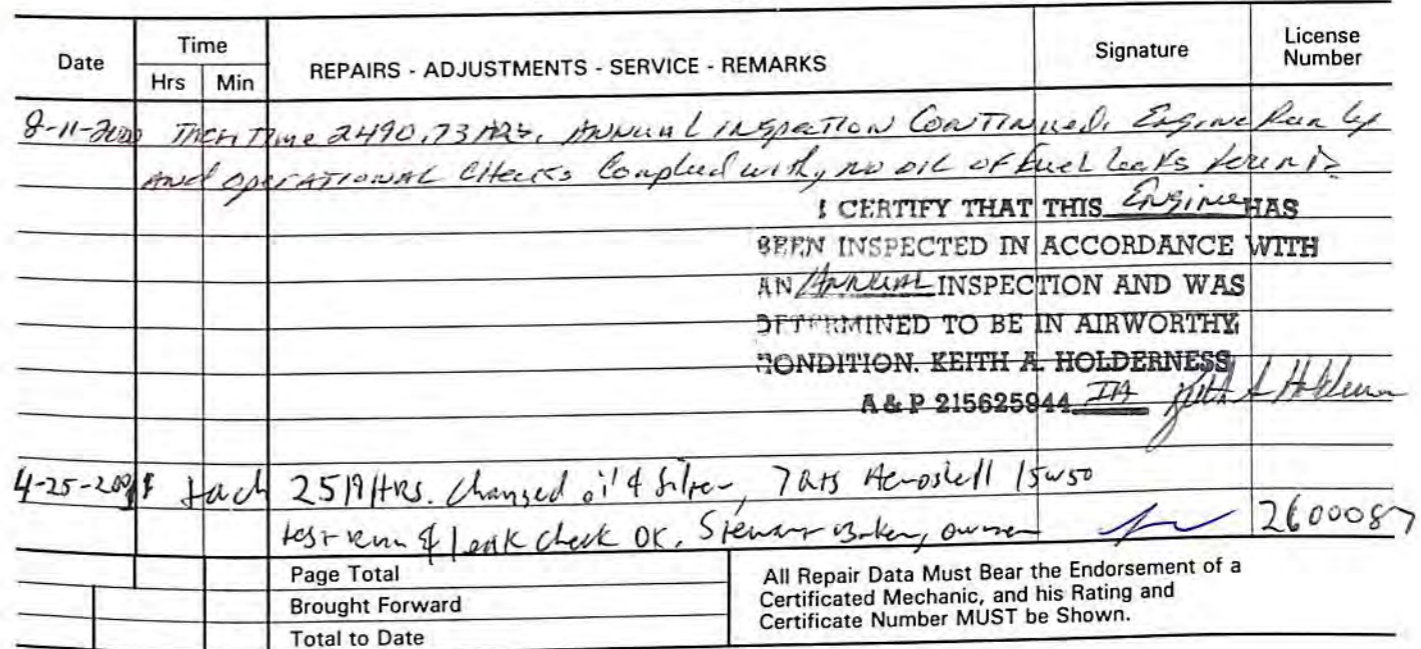 Date Time REPAIRS - ADJUSTMENTS - SERVICE - REMARKS Signature License Number
Hrs Min
Tach Time 2490.73 HRS. Annual inspection Continued. Engine Run Up
And operational Checks Complied with, no oil or fuel leaks found
I CERTIFY THAT THIS Engine HAS
BEEN INSPECTED IN ACCORDANCE WITH
AN Annual INSPECTION AND WAS
DETERMINED TO BE IN AIRWORTHY
CONDITION. KEITH A. HOLDERNESS
A & P 215625944 IA
4-25- tach 2519 HRS. Changed oil & filter, 7 Qts Aeroshell 15w50
test run & leak check OK, owner 2600087
Page Total
Brought Forward
Total to Date
All Repair Data Must Bear the Endorsement of a
Certificated Mechanic, and his Rating and
Certificate Number MUST be Shown.